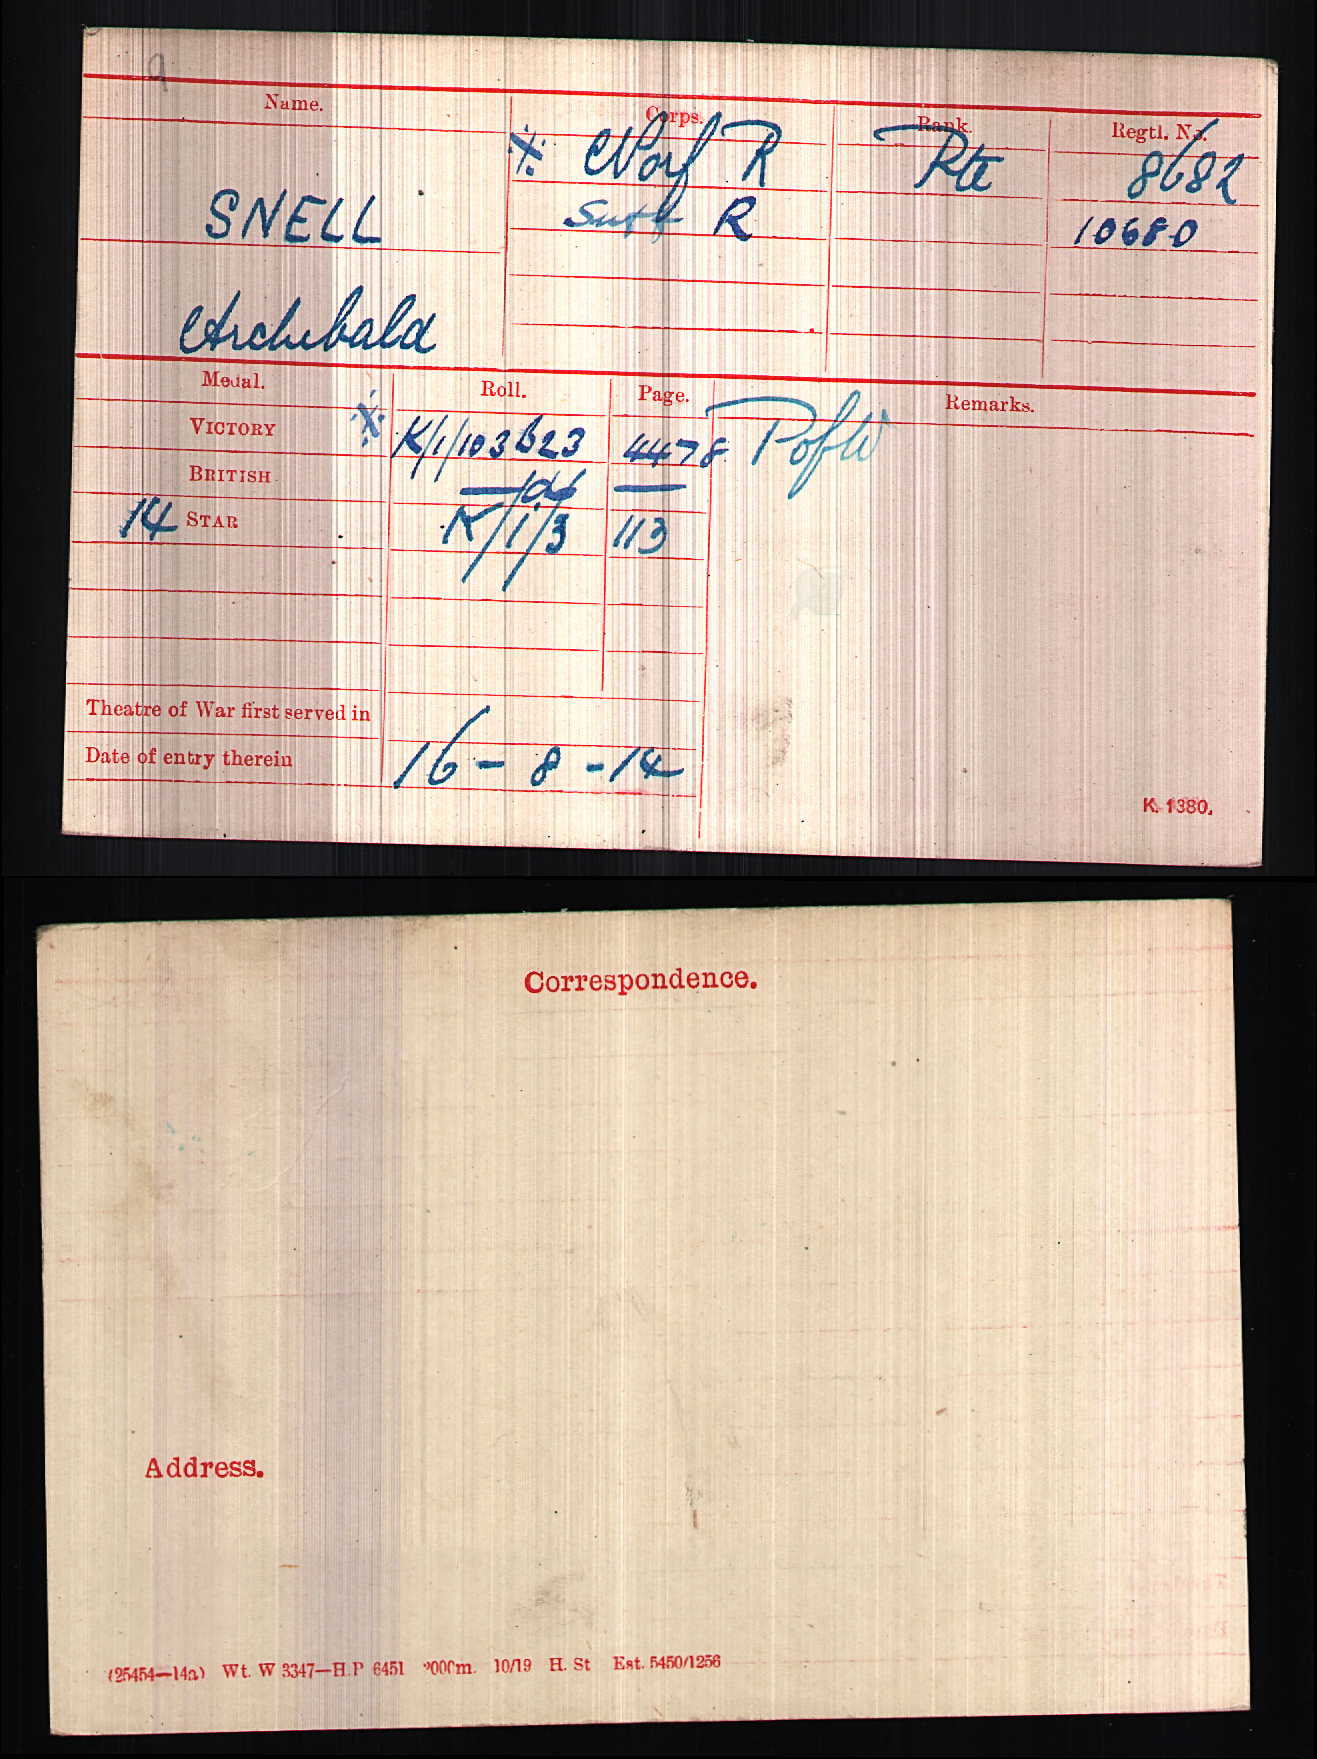 Name. Corps. Rank. Regtl. No.
※ Norf R Pte 8682
SNELL Suff R 10680
Archibald
Medal. Roll. Page. Remarks.
VICTORY ※ K/1/103B23 4478 PofW
BRITISH —do— —
14 STAR K/1/3 113
Theatre of War first served in
Date of entry therein 16-8-14
K. 1380.
Correspondence.
Address.
(25454—14a) Wt. W 3347—H.P 6451 10/19 H. St Est. 5450/1256